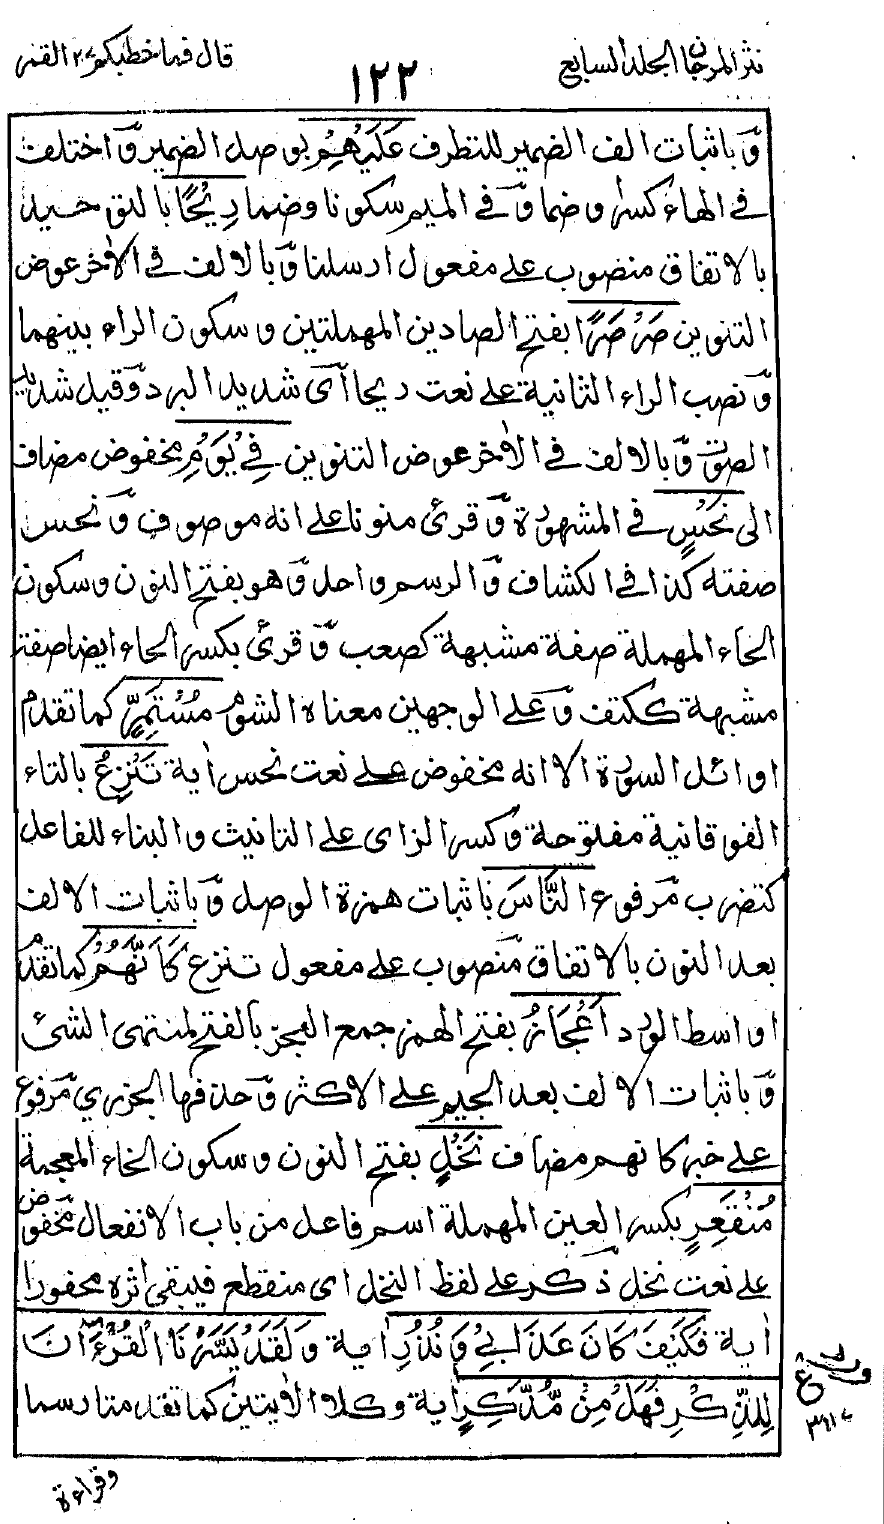 نثر المرجان الجلد السابع
١٢٢
قال فما خطبكم ٢٧ القمر
وباثبات الف الضمير للتطرف عَلَيْهِمْ بوصل الضمير واختلف
فى الهاء كسرا وضما وفى الميم سكونا وضما رِيْحًا بالنون حيد
بالاتفاق منصوب على مفعول ارسلنا وبالالف فى الاخر عوض
التنوين صَرْصَرًا بفتح الصادين المهملتين وسكون الراء بينهما
ونصب الراء الثانية على نعت ريحا أى شديد البرد وقيل شديد
الصوت وبالالف فى الاخر عوض التنوين فِىْ يَوْمِ مخفوض مضاف
الى نَحْسٍ فى المشهورة وقرئ منونا على انه موصوف ونحس
صفته كذا فى الكشاف والرسم واحد وهو بفتح النون وسكون
الحاء المهملة صفة مشبهة كصعب وقرئ بكسر الحاء ايضا صفة
مشبهة ككتف وعلى الوجهين معناه الشوم مُسْتَمِرٍّ كما تقدم
اوائل السورة الا انه مخفوض على نعت نحس اية تَنْزِعُ بالتاء
الفوقانية مفتوحة وكسر الزاى على التانيث والبناء للفاعل
كتضرب مرفوع النَّاسَ باثبات همزة الوصل وباثبات الالف
بعد النون بالاتفاق منصوب على مفعول تنزع كَاَنَّهُمْ كما تقدم
اواسط الورد اَعْجَازُ بفتح الهمز جمع العجز بالفتح لمنتهى الشئ
وباثبات الالف بعد الجيم على الاكثر وحذفها الجزرى مرفوع
على خبر كانهم مضاف نَخْلٍ بفتح النون وسكون الخاء المعجمة
مُنْقَعِرٍ بكسر العين المهملة اسم فاعل من باب الانفعال مخفوض
على نعت نخل ذكر على لفظ النخل اى منقطع فيبقى اثره محفورا
اية فَكَيْفَ كَانَ عَذَابِىْ وَنُذُرِ اية وَلَقَدْ يَسَّرْنَا الْقُرْءَانَ
لِلذِّكْرِ فَهَلْ مِنْ مُّدَّكِرٍ اية وكلا الايتين كما تقدمتا رسما
وقراءة